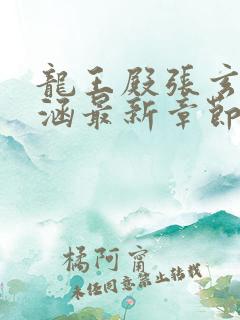 龍王殿張玄
涵最新章節
橘阿甯
未经同意禁止转载